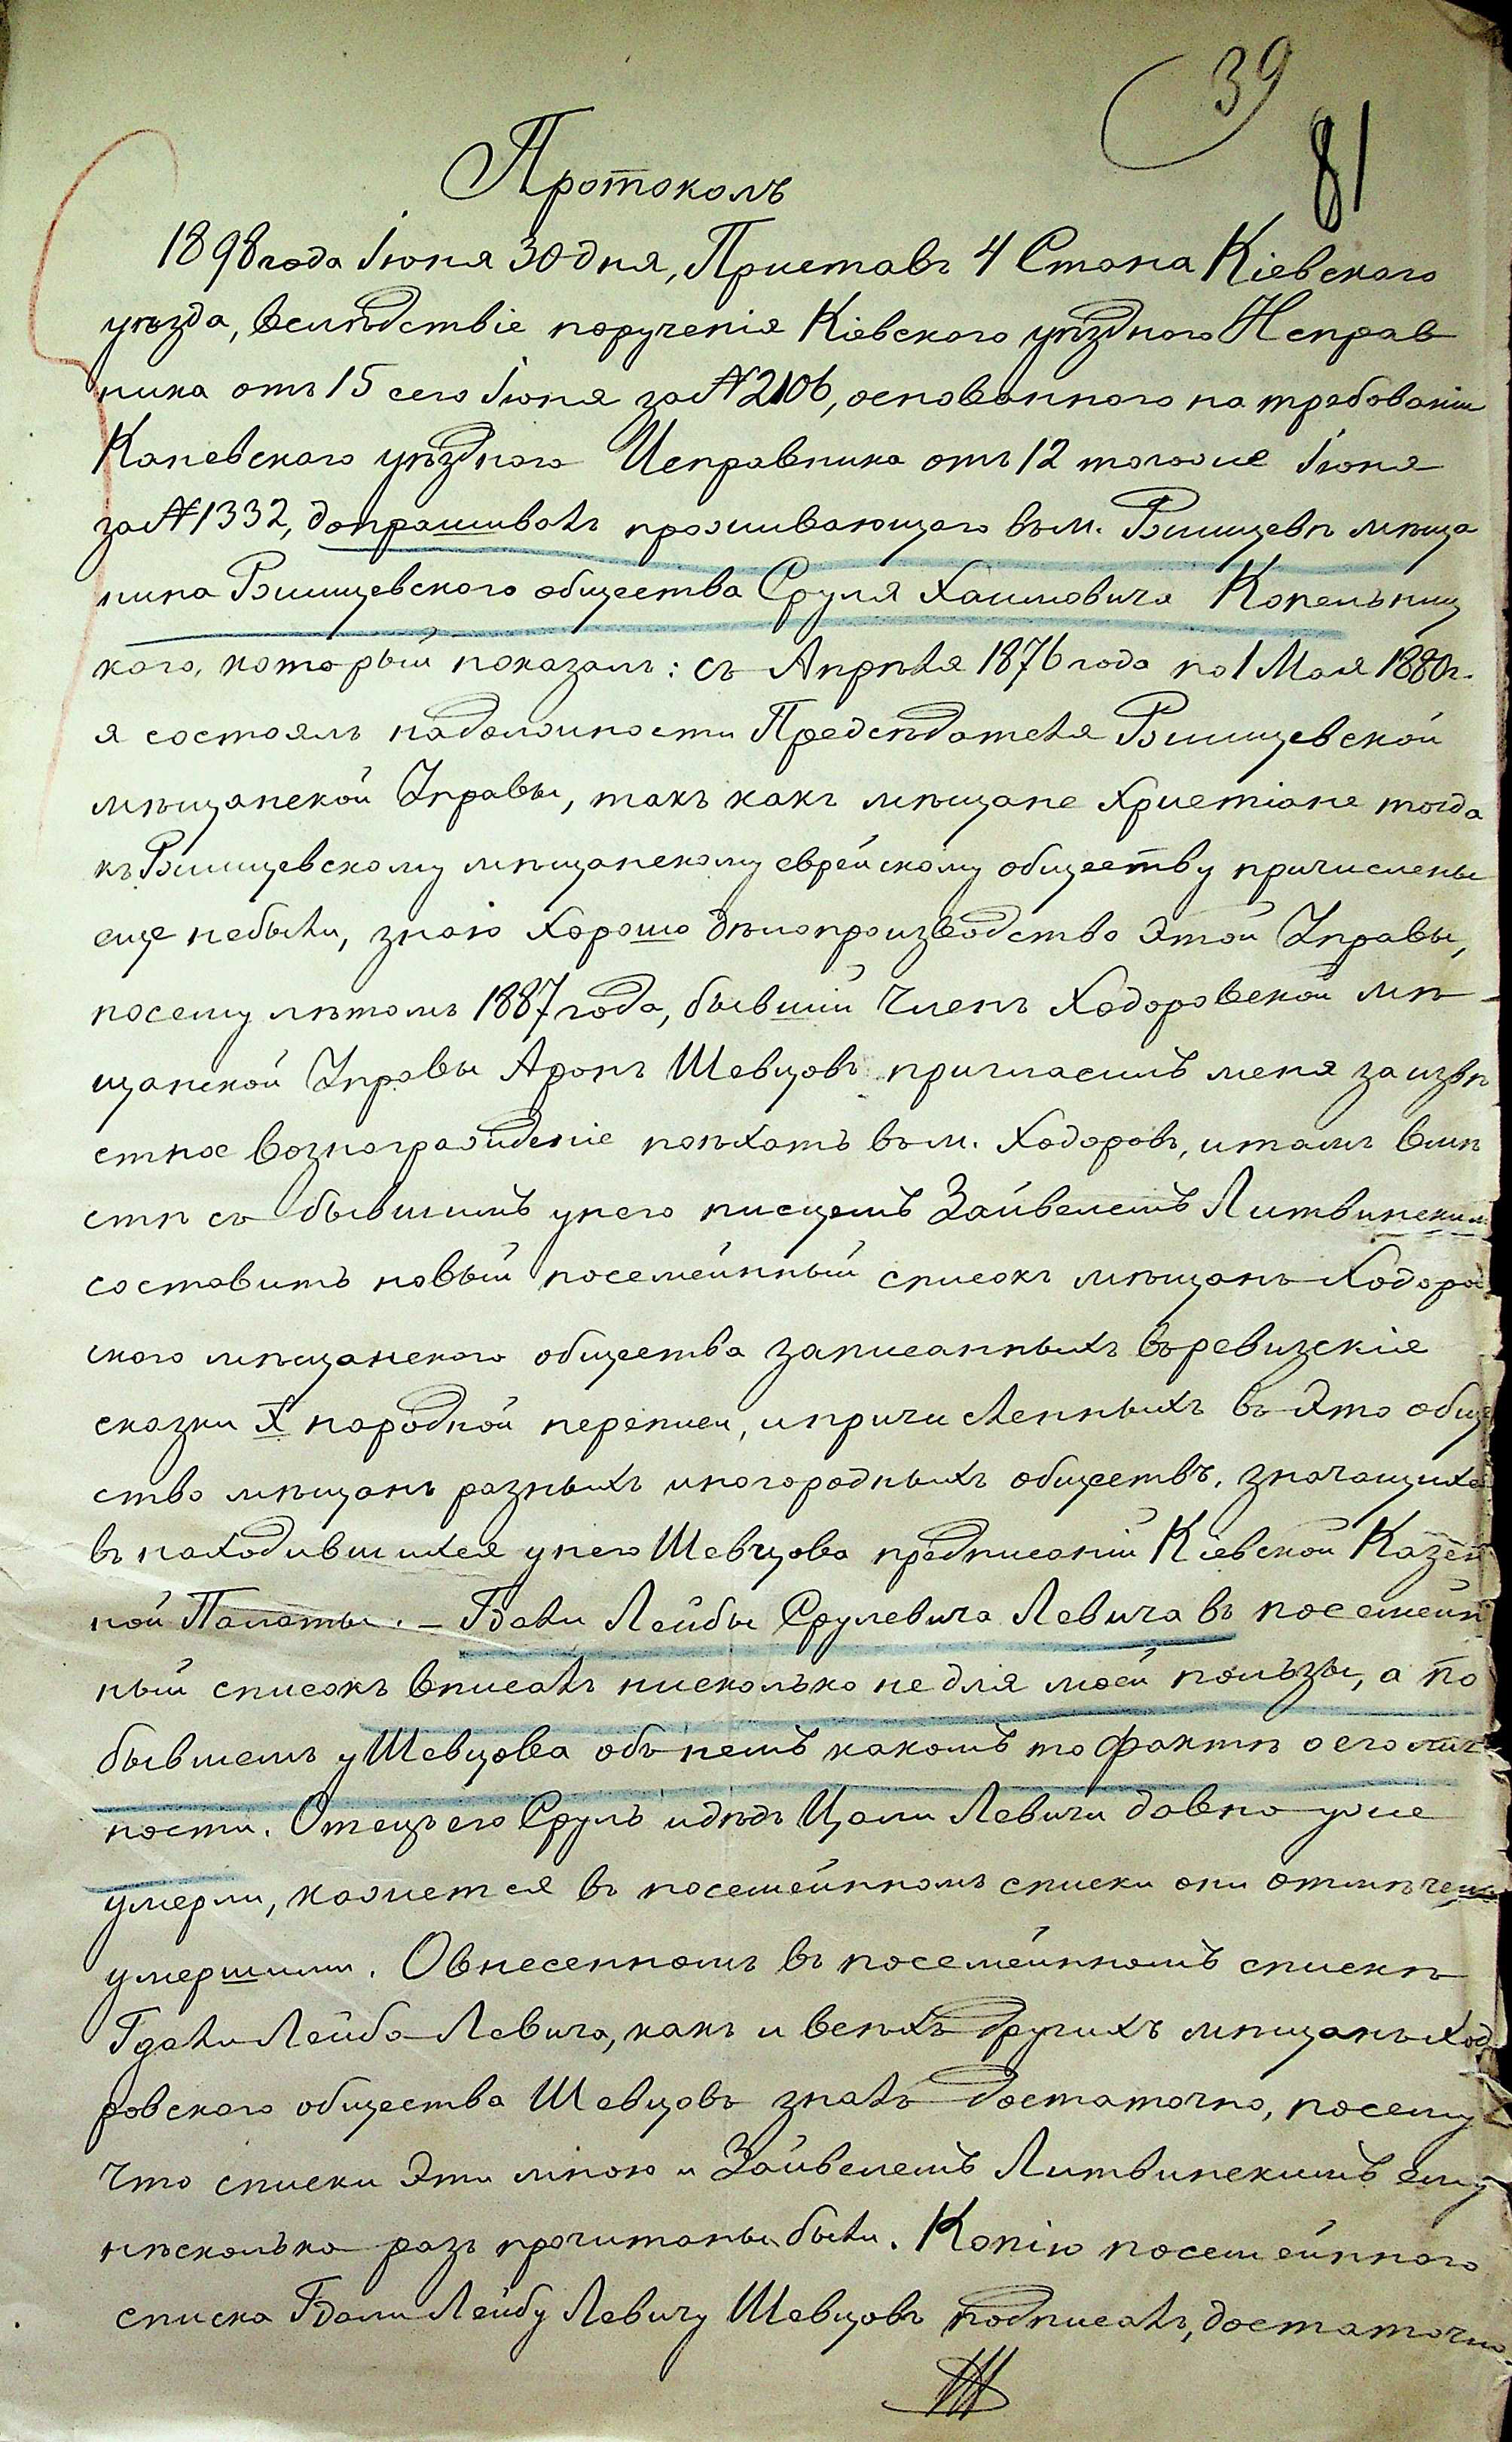 39
81
Протоколъ
1898 года Іюня 30 дня, Приставъ 4 Стана Кіевскаго
уѣзда, вслѣдствіе порученія Кіевскаго уѣзднаго Исправ
ника отъ 15 сего Іюня за № 2106, основаннаго на требованіи
Каневскаго уѣзднаго Исправника отъ 12 того же Іюня
за № 1332, допрашивалъ проживающаго въ м. Ржищевѣ мѣща
нина Ржищевскаго общества Сруля Хаимовича Копельниц
каго, который показалъ: съ Апрѣля 1876 года по 1 Мая 1880 г.
я состоялъ на должности Предсѣдателя Ржищевской
мѣщанской Управы, такъ какъ мѣщане Христіане тогда
къ Ржищевскому мѣщанскому еврейскому обществу причислены
еще не были, знаю хорошо дѣлопроизводство этой Управы,
посему лѣтомъ 1887 года, бывшій Членъ Ходоровской мѣ-
щанской Управы Аронъ Шевцовъ пригласилъ меня за извѣ
стное вознагражденіе поѣхать въ м. Ходоровъ, и тамъ вмѣ
стѣ съ бывшимъ у него писцемъ Зайвелемъ Литвинскимъ
составить новый посемейный списокъ мѣщанъ Ходоров
скаго мѣщанскаго общества записанныхъ въ ревизскіе
сказки X народной переписи, и причисленныхъ въ это обще
ство мѣщанъ разныхъ иногородныхъ обществъ, значащихся
въ находившихся у него Шевцова предписаній Кіевской Казен
ной Палаты. — Гдали Лейбы Срулевича Левича въ посемейн
ный списокъ вписалъ нисколько не для моей пользы, а по
бывшемъ у Шевцова объ немъ какомъ то фактѣ о его лич
ности. Отецъ его Срулъ и дѣдъ Цали Левичи давно уже
умерли, кажется въ посемейнномъ списки они отмѣчены
умершими. О внесенномъ въ посемейнномъ спискѣ
Гдали Лейба Левича, какъ и всѣхъ другихъ мѣщанъ Ходо
ровскаго общества Шевцовъ зналъ достаточно, посему
что списки эти мною и Зайвелемъ Литвинскимъ ему
нѣсколько разъ прочитаны были. Копію посемейннаго
списка Гдали Лейбу Левичу Шевцовъ подписалъ, достаточно